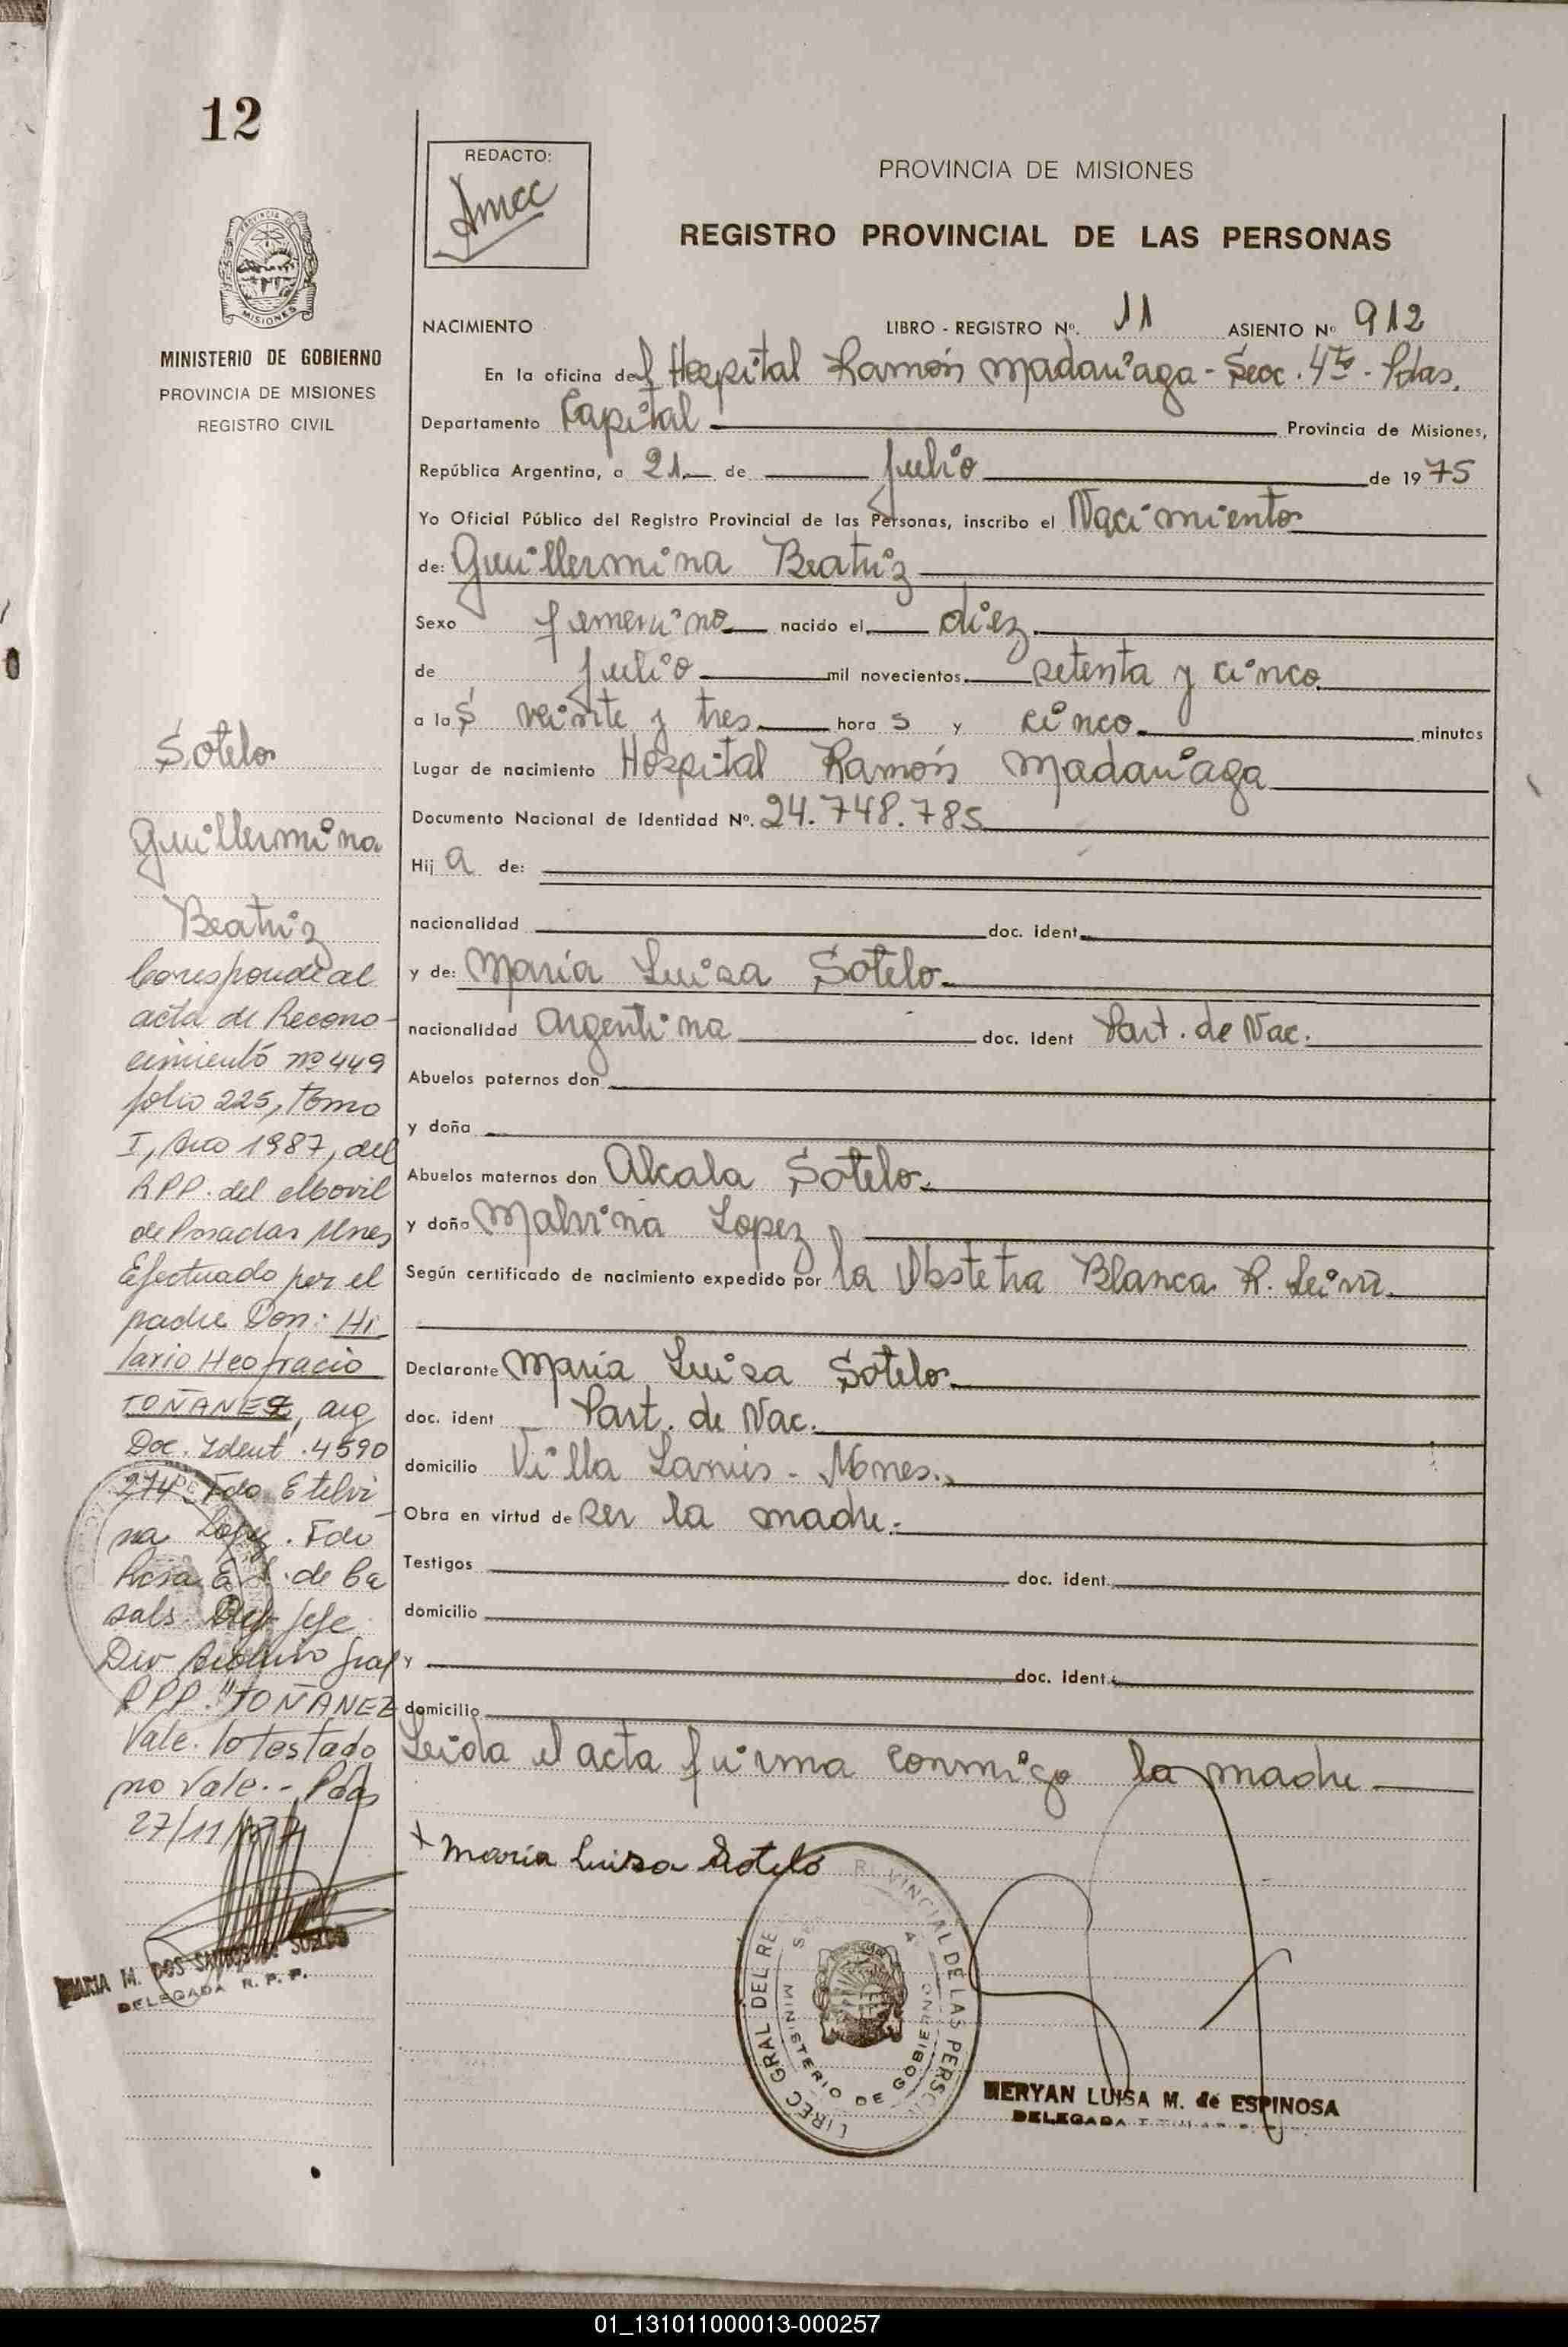 12
REDACTO:
PROVINCIA DE MISIONES
REGISTRO PROVINCIAL DE LAS PERSONAS
PROVINCIA DE
MISIONES
MINISTERIO DE GOBIERNO
PROVINCIA DE MISIONES
REGISTRO CIVIL
NACIMIENTO LIBRO - REGISTRO Nº. 11 ASIENTO Nº 912
En la oficina del Hospital Ramón Madariaga - Secc. 4ta - Pdas.
Departamento Capital Provincia de Misiones,
República Argentina, a 21 de Julio de 1975
Yo Oficial Público del Registro Provincial de las Personas, inscribo el Nacimiento
de: Guillermina Beatriz
Sexo femenino nacido el diez
de julio mil novecientos setenta y cinco
a las veinte y tres horas y cinco minutos
Lugar de nacimiento Hospital Ramón Madariaga
Documento Nacional de Identidad Nº. 24.748.785
Hija de:
nacionalidad doc. ident.
y de: María Luisa Sotelo
nacionalidad argentina doc. Ident Part. de Nac.
Abuelos paternos don
y doña
Abuelos maternos don Alcala Sotelo
y doña Malvina Lopez
Según certificado de nacimiento expedido por la Obstetra Blanca R.
Declarante María Luisa Sotelo
doc. ident Part. de Nac.
domicilio Villa Lanús - Mnes.
Obra en virtud de ser la madre
Testigos doc. ident.
domicilio
y doc. ident.
domicilio
Leida el acta firma conmigo la madre
x María Luisa Sotelo
MINISTERIO DE GOBIERNO
MERYAN LUISA M. de ESPINOSA
DELEGADA
Sotelo
Guillermina
Beatriz
Corresponde al
acta de Recono-
cimiento nº 449
folio 225, Tomo
I, Año 1987, del
RPP. del Movil
de Posadas Mnes
Efectuado por el
padre Don: Hi
lario Heofracio
TOÑANEZ, arg
Doc. Ident. 4590
274 Fdo. Etelvi
na Lopez. Fdo
Rosa E S. de Ca
sals. Jefe
Div Archivo Gral
RPP. "TOÑANEZ
Vale. lo testado
no Vale.- Pdas
27/11/
MARIA M. DOS SANTOS
DELEGADA R. P. P.
01_131011000013-000257